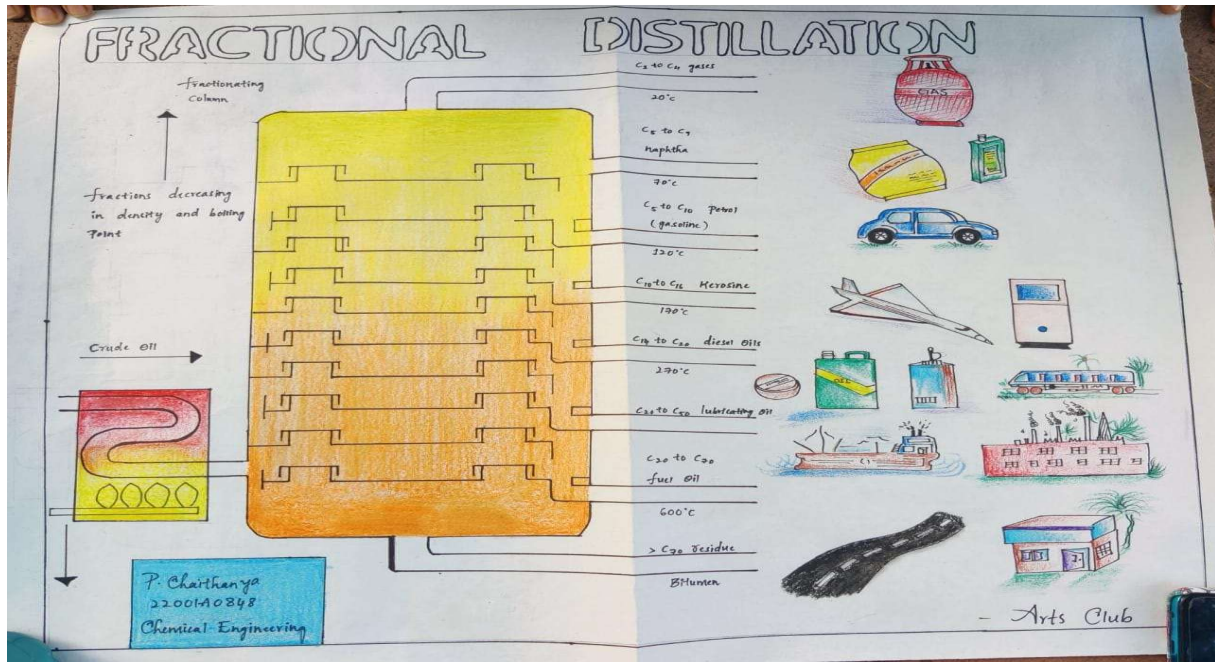 FRACTIONAL DISTILLATION
fractionating
column
fractions decreasing
in density and boiling
Point
Crude Oil
C₂ to C₄ gases
20°c
C₅ to C₉
naphtha
70°c
C₅ to C₁₀ Petrol
(gasoline)
120°c
C₁₀ to C₁₆ Kerosine
170°c
C₁₄ to C₂₀ diesel Oils
270°c
C₂₀ to C₅₀ lubricating Oil
C₂₀ to C₇₀
fuel Oil
600°c
> C₇₀ residue
Bitumen
GAS
OIL
P. Chaithanya
22001A0848
Chemical-Engineering
- Arts Club